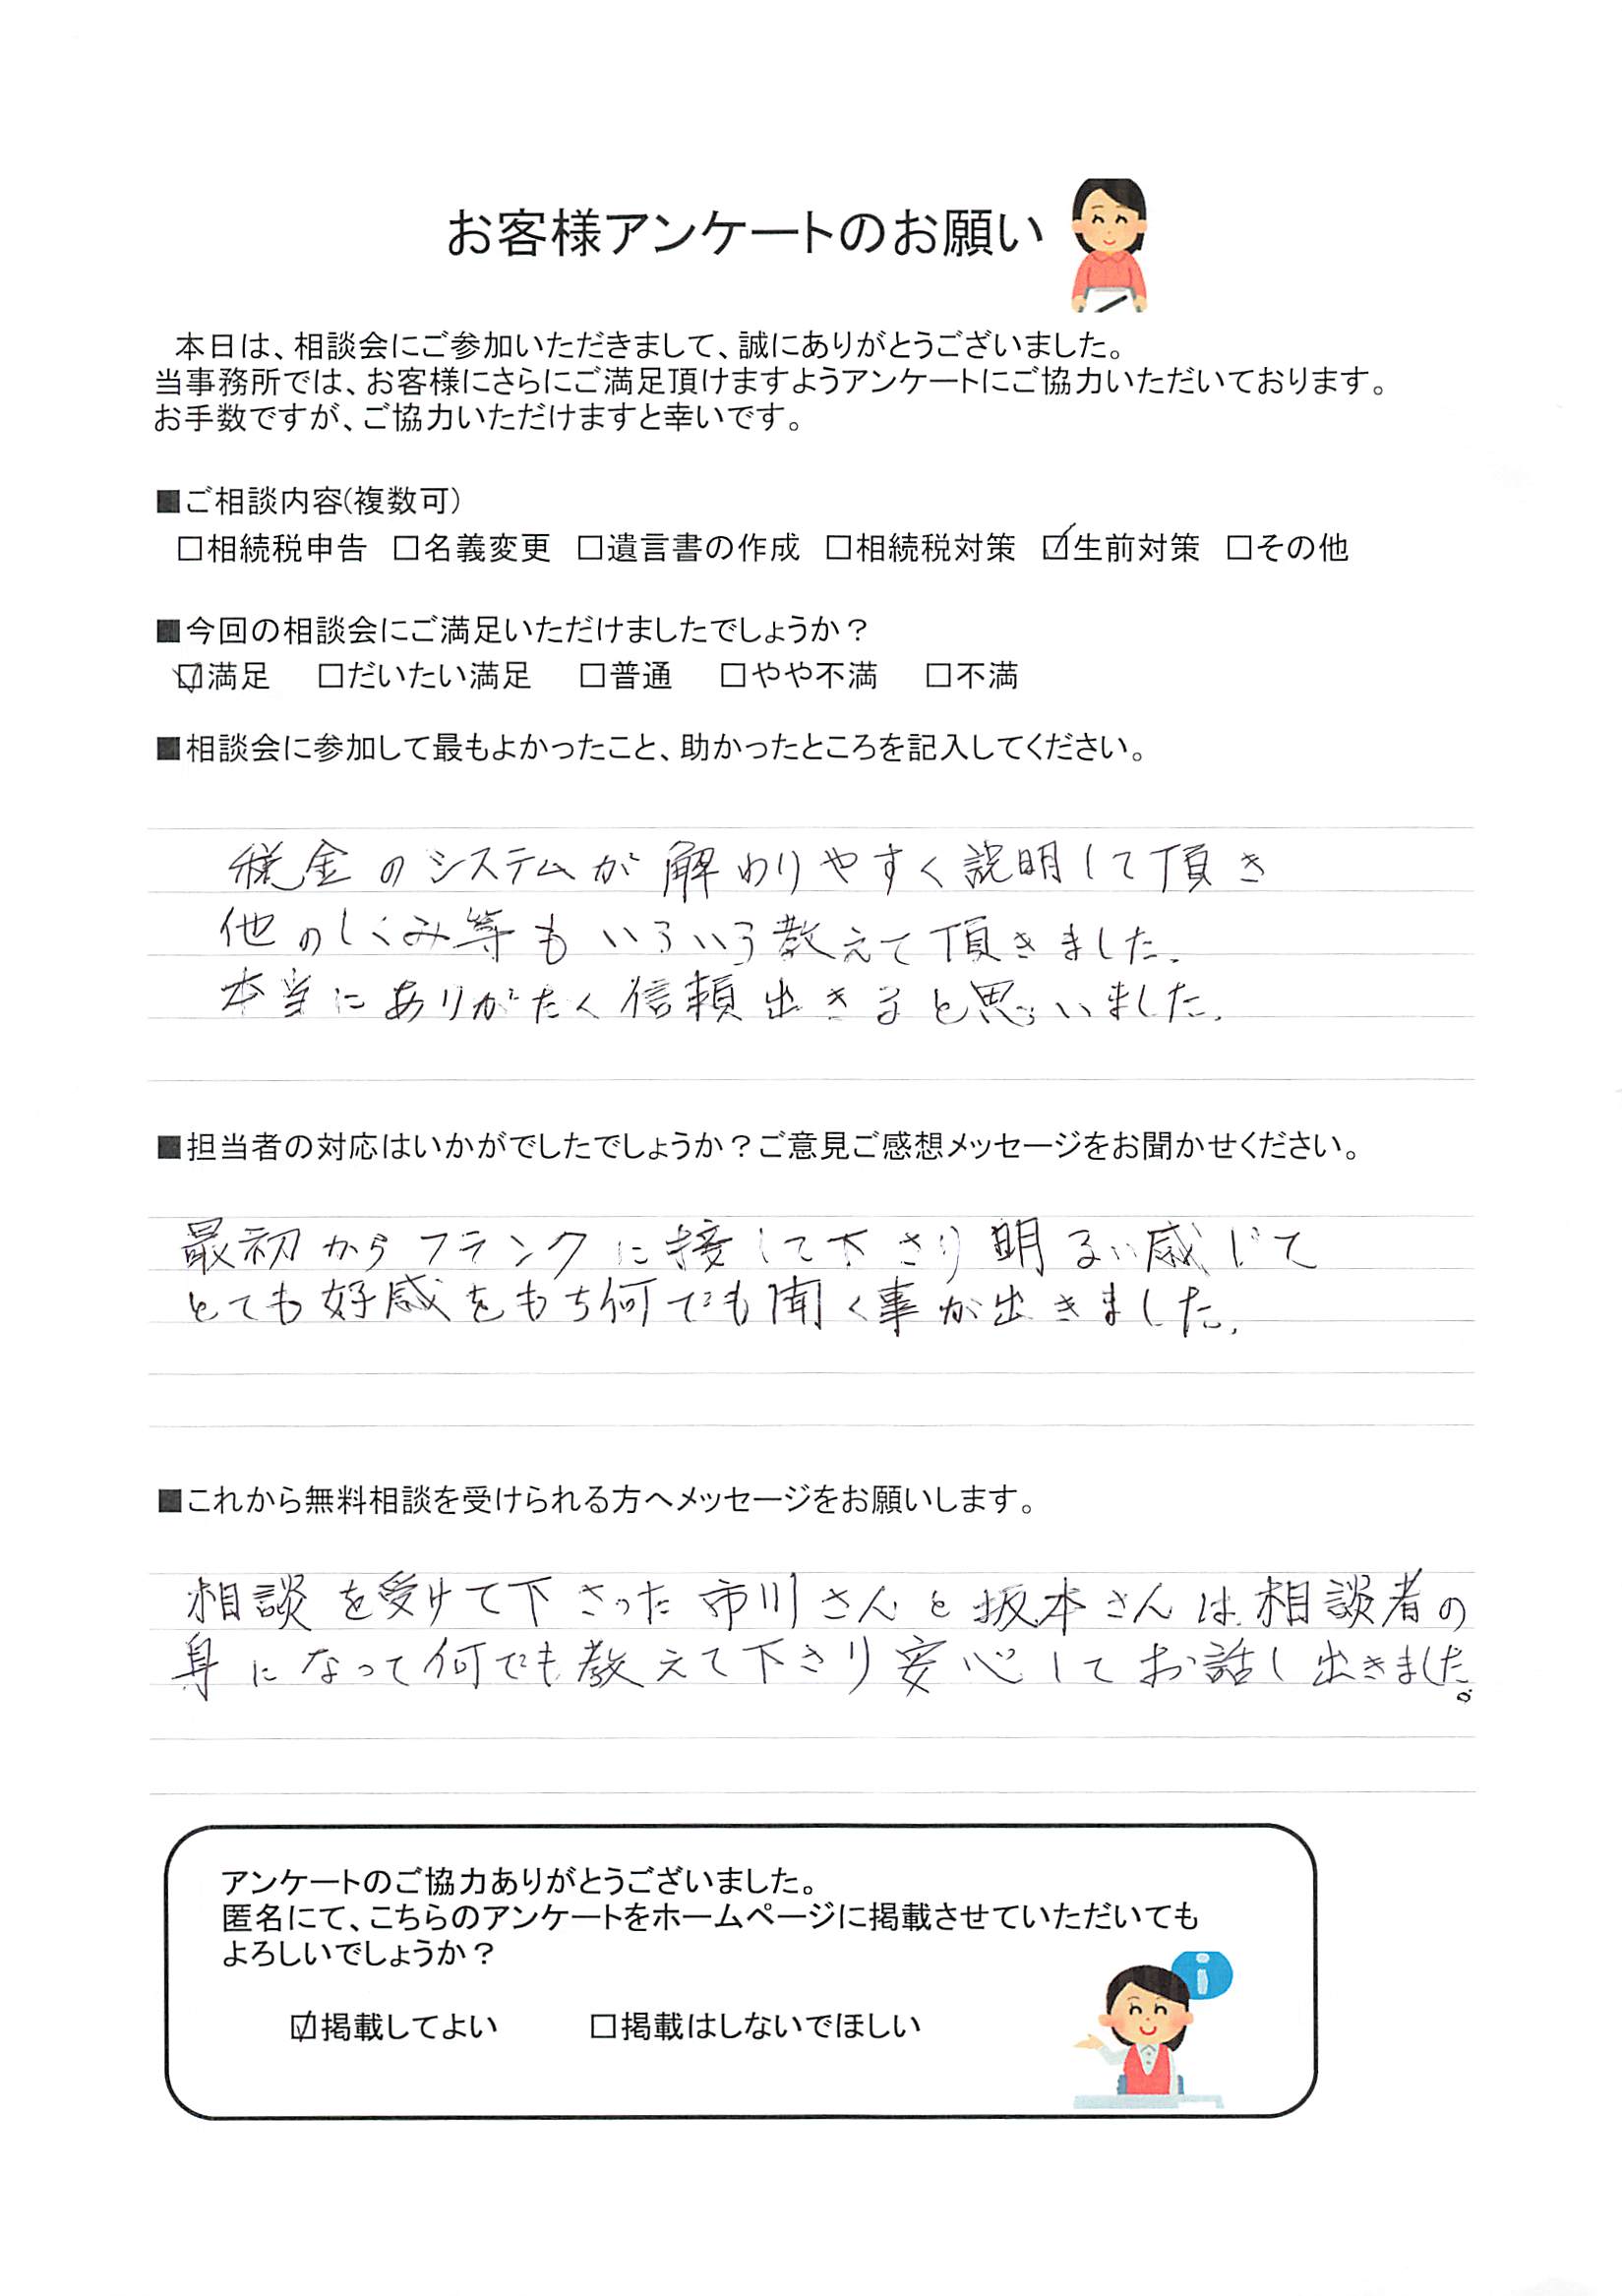 お客様アンケートのお願い
本日は、相談会にご参加いただきまして、誠にありがとうございました。
当事務所では、お客様にさらにご満足頂けますようアンケートにご協力いただいております。
お手数ですが、ご協力いただけますと幸いです。
■ご相談内容(複数可)
□相続税申告 □名義変更 □遺言書の作成 □相続税対策 ☑生前対策 □その他
■今回の相談会にご満足いただけましたでしょうか？
☑満足 □だいたい満足 □普通 □やや不満 □不満
■相談会に参加して最もよかったこと、助かったところを記入してください。
税金のシステムが解わりやすく説明して頂き
他のしくみ等もいろいろ教えて頂きました。
本当にありがたく信頼出きると思いました。
■担当者の対応はいかがでしたでしょうか？ご意見ご感想メッセージをお聞かせください。
最初からフランクに接して下さり明るい感じて
とても好感をもち何でも聞く事が出きました。
■これから無料相談を受けられる方へメッセージをお願いします。
相談を受けて下さった市川さんと坂本さんは相談者の
身になって何でも教えて下さり安心してお話し出きました。
アンケートのご協力ありがとうございました。
匿名にて、こちらのアンケートをホームページに掲載させていただいても
よろしいでしょうか？
☑掲載してよい □掲載はしないでほしい